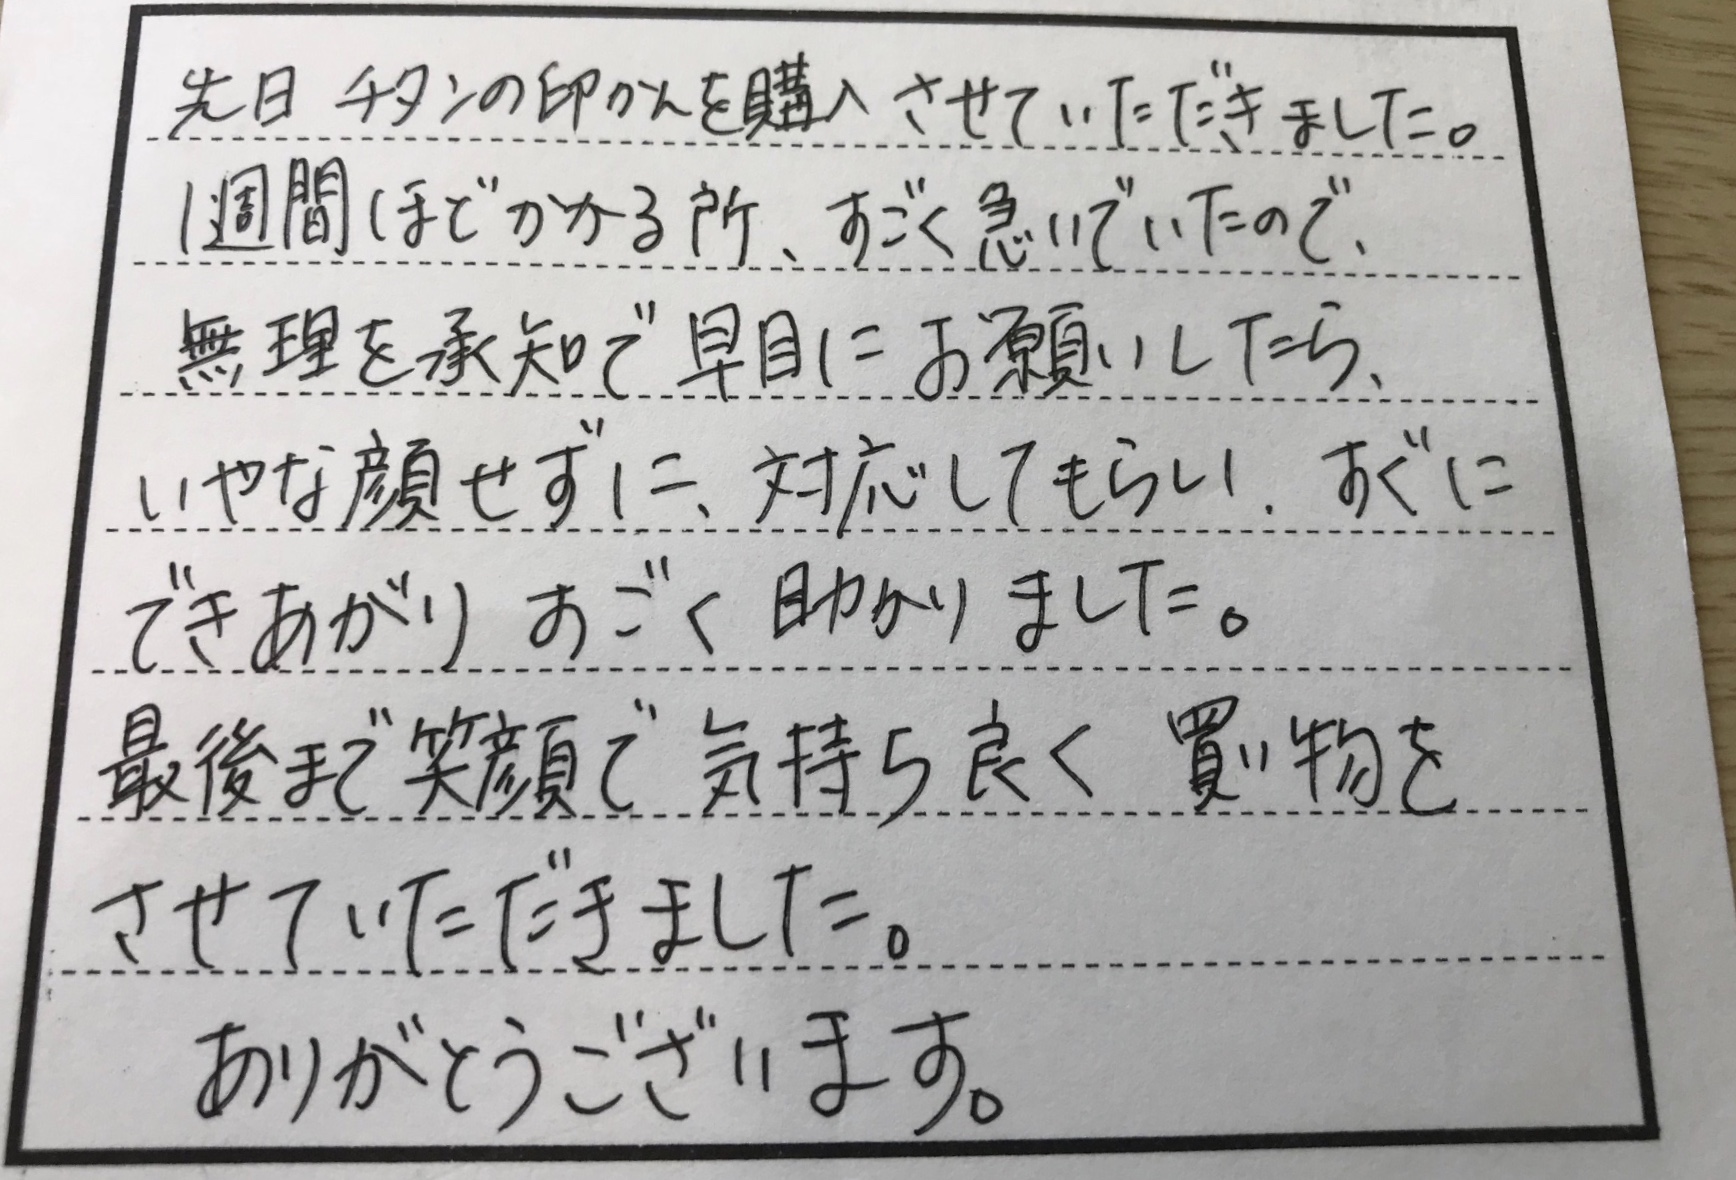 先日 チタンの印かんを購入させていただきました。
1週間ほどかかる所、すごく急いでいたので、
無理を承知で早目にお願いしたら、
いやな顔せずに、対応してもらい、すぐに
できあがり すごく 助かりました。
最後まで笑顔で気持ち良く 買い物を
させていただきました。
ありがとうございます。